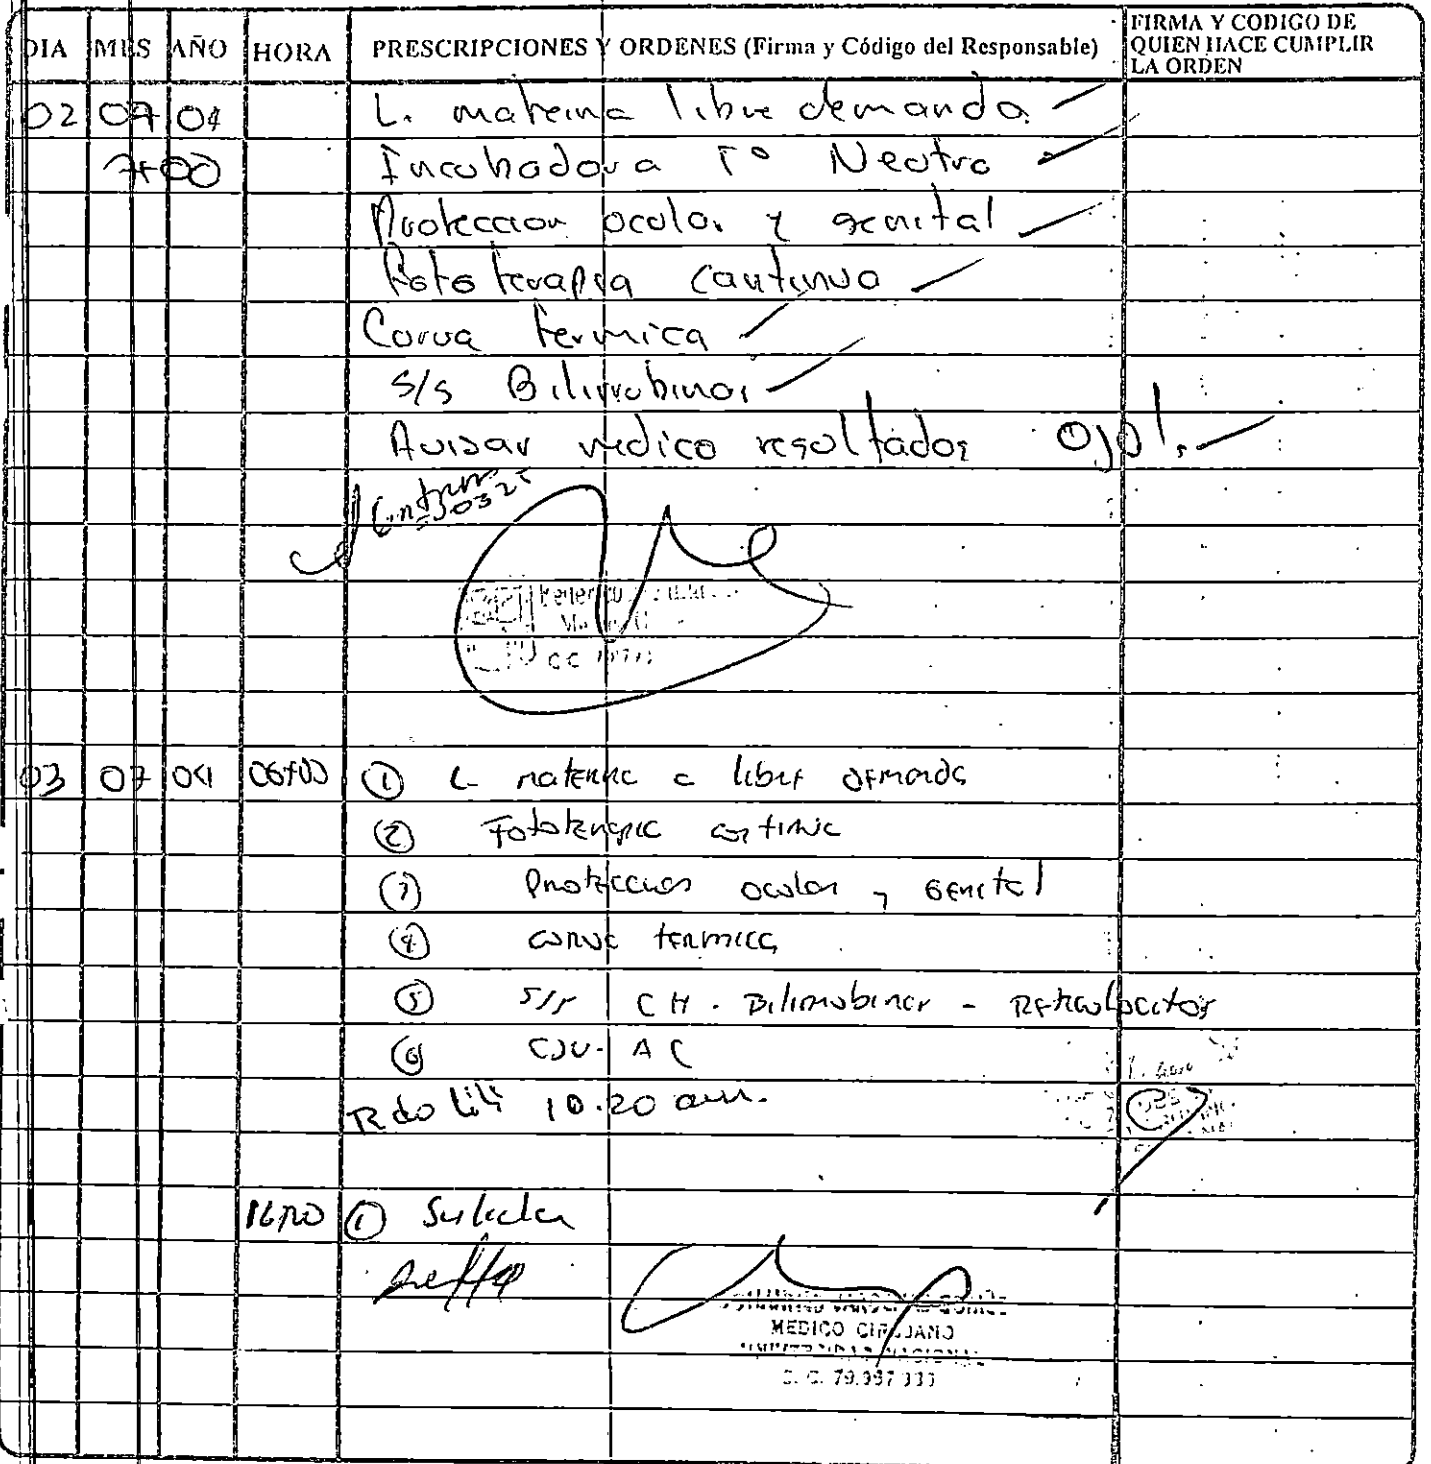 DIA MES AÑO HORA PRESCRIPCIONES Y ORDENES (Firma y Código del Responsable) FIRMA Y CODIGO DE QUIEN HACE CUMPLIR LA ORDEN
02 07 04 L. materna libre demanda
7+00 Incubadora T° Neutra
Proteccion ocular y genital
Fototerapia continua
Curva termica
s/s Bilirrubinas
Avisar medico resultados Ojo!
03 07 04 06+00 ① L. materna a libre demanda
② Fototerapia continua
③ Proteccion ocular y genital
④ curva termica
⑤ s/s CH - Bilirrubinas - Reticulocitos
⑥ CSV - AC
Rdo 10.20 am.
①
MEDICO CIRUJANO
UNIVERSIDAD NACIONAL
C. C. 79.997.333